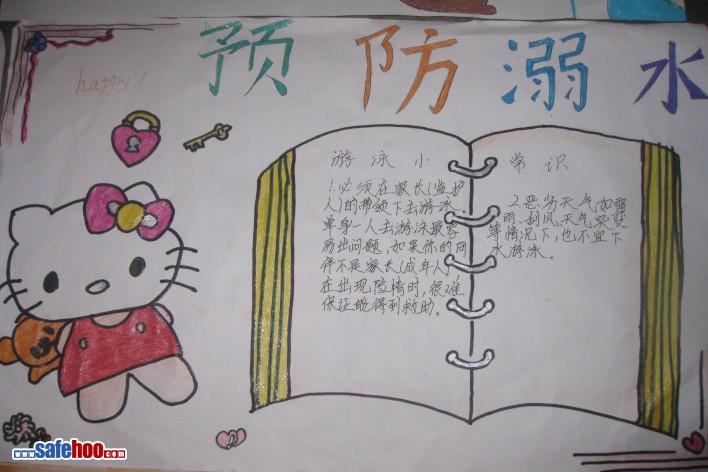 预防溺水
happy!
游泳小常识
1.必须在家长(监护
人)的带领下去游泳。
单身一人去游泳最容
易出问题,如果你的同
伴不是家长(成年人)
在出现险情时,很难
保证能得到救助。
2.恶劣天气,如雷
雨、刮风、天气突变
等情况下,也不宜下
水游泳。
www.safehoo.com